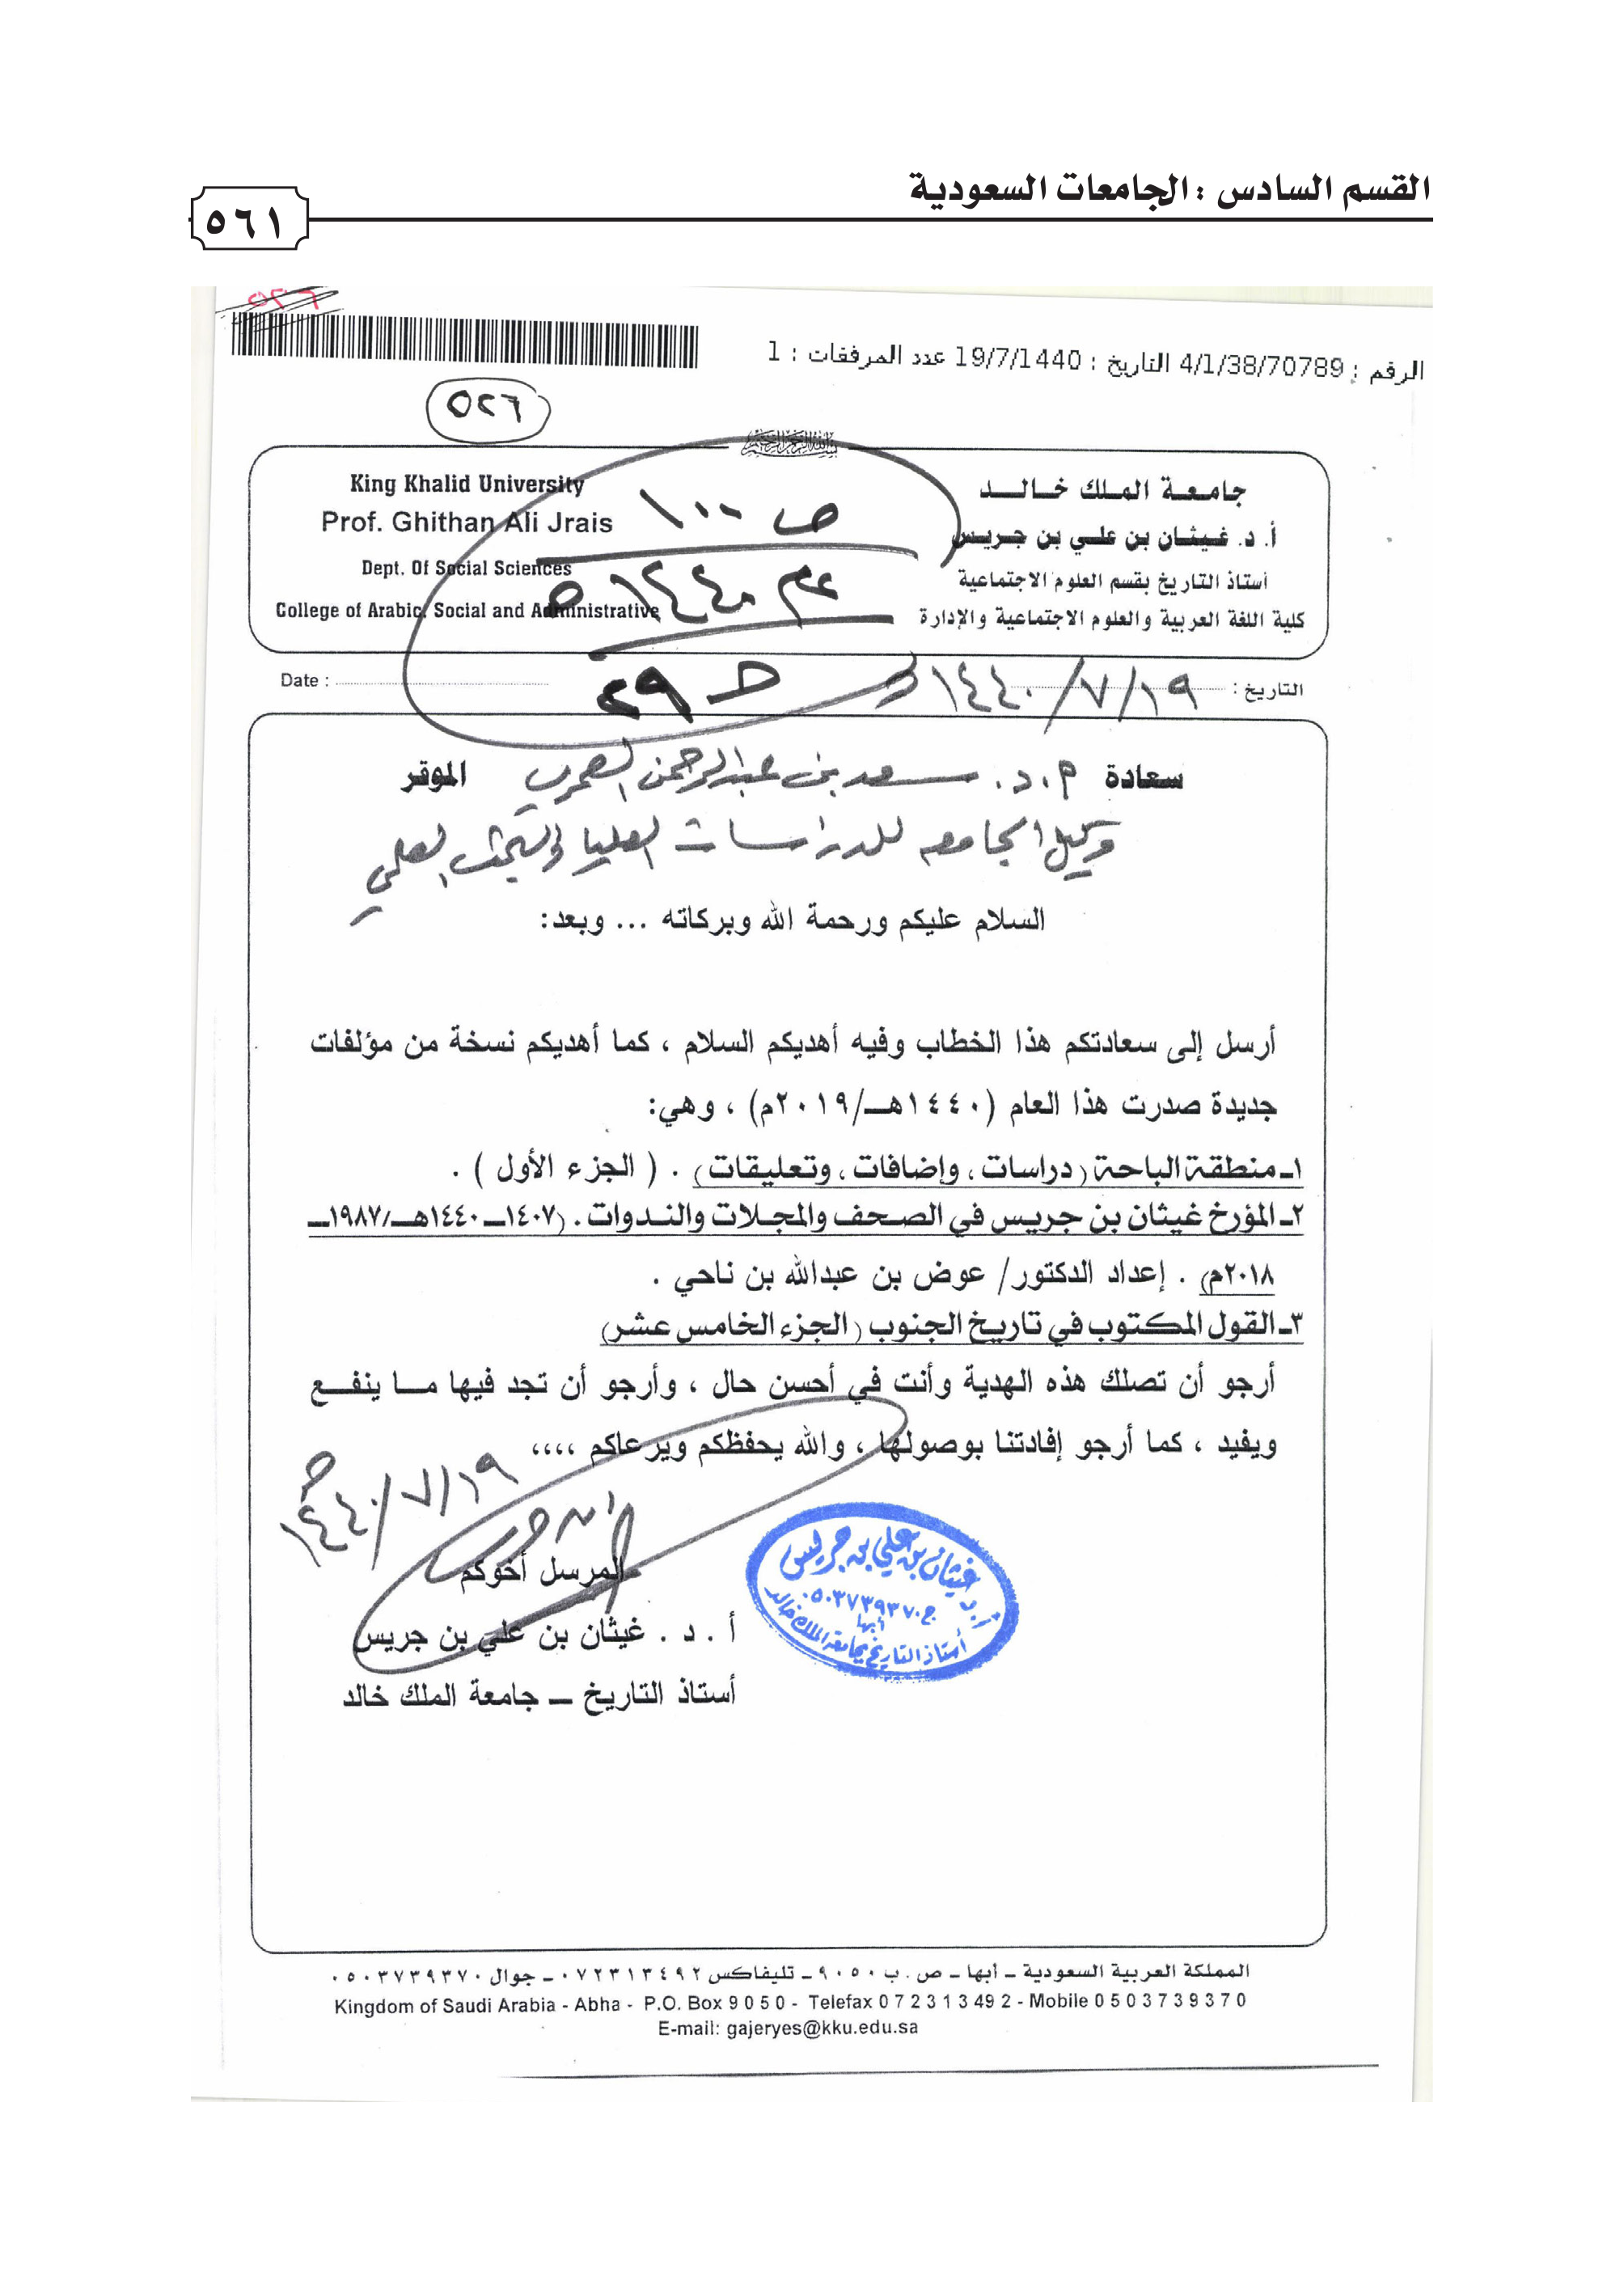 القسم السادس : الجامعات السعودية
٥٦١
الرقم : 4/1/38/70789 التاريخ : 19/7/1440 عدد المرفقات : 1
٥٢٦
جامعة الملك خالد
أ. د. غيثان بن علي بن جريس
أستاذ التاريخ بقسم العلوم الاجتماعية
كلية اللغة العربية والعلوم الاجتماعية والإدارة
King Khalid University
Prof. Ghithan Ali Jrais
Dept. Of Social Sciences
College of Arabic, Social and Administrative
ص ١٠٠
١٤٤٠هـ
٢٩
التاريخ : ١٩/٧/١٤٤٠
Date :
سعادة أ.د. سعد بن عبدالرحمن العمري الموقر
وكيل الجامعه للدراسات العليا والبحث العلمي
السلام عليكم ورحمة الله وبركاته ... وبعد:
أرسل إلى سعادتكم هذا الخطاب وفيه أهديكم السلام ، كما أهديكم نسخة من مؤلفات
جديدة صدرت هذا العام (١٤٤٠هـ/٢٠١٩م) ، وهي:
١ـ منطقة الباحة (دراسات ، وإضافات ، وتعليقات) . ( الجزء الأول ) .
٢ـ المؤرخ غيثان بن جريس في الصحف والمجلات والندوات . (١٤٠٧ـ ١٤٤٠هـ/ ١٩٨٧ـ
٢٠١٨م) . إعداد الدكتور/ عوض بن عبدالله بن ناحي .
٣ـ القول المكتوب في تاريخ الجنوب (الجزء الخامس عشر)
أرجو أن تصلك هذه الهدية وأنت في أحسن حال ، وأرجو أن تجد فيها ما ينفع
ويفيد ، كما أرجو إفادتنا بوصولها ، والله يحفظكم ويرعاكم ،،،،
١٩/٧/١٤٤٠هـ
المرسل أخوكم
أ . د . غيثان بن علي بن جريس
أستاذ التاريخ ـ جامعة الملك خالد
أ.د غيثان بن علي بن جريس
ج٠٥٠٣٧٣٩٣٧٠
أبها
أستاذ التاريخ بجامعة الملك خالد
المملكة العربية السعودية ـ أبها ـ ص . ب ٩٠٥٠ ـ تليفاكس ٠٧٢٣١٣٤٩٢ ـ جوال ٠٥٠٣٧٣٩٣٧٠
Kingdom of Saudi Arabia - Abha - P.O. Box 9 0 5 0 - Telefax 0 7 2 3 1 3 49 2 - Mobile 0 5 0 3 7 3 9 3 7 0
E-mail: gajeryes@kku.edu.sa